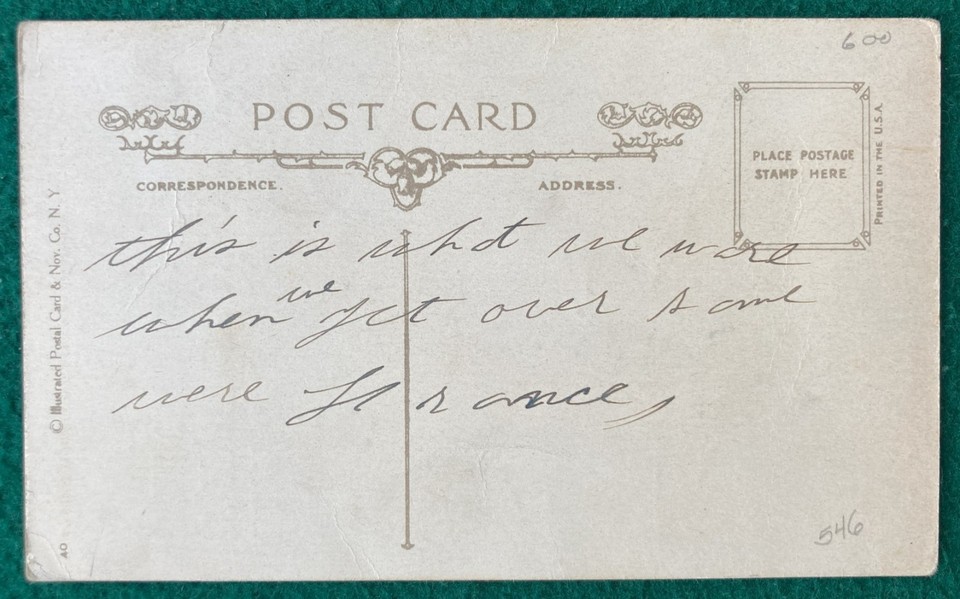 600
POST CARD
CORRESPONDENCE.
ADDRESS.
PLACE POSTAGE
STAMP HERE
PRINTED IN THE U.S.A.
© Illustrated Postal Card & Nov. Co. N. Y
AO
this is what we ware
we
when get over some
were France
546